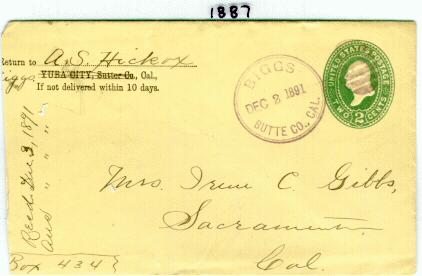 1887
Return to A. S. Hickox
Biggs
YUBA CITY, Sutter Co., Cal.,
If not delivered within 10 days.
BIGGS
DEC 2 1891
BUTTE CO., CAL.
UNITED STATES POSTAGE
TWO 2 CENTS
Mrs. Irene C. Gibbs,
Sacramento
Cal.
Recd Dec 3, 1891
Ans " " "
Box 434